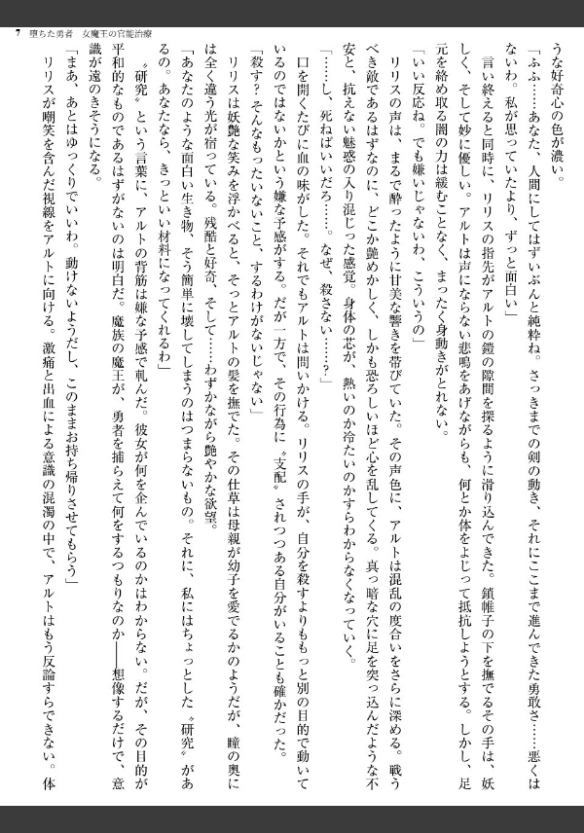 7 堕ちた勇者　女魔王の官能治療
うな好奇心の色が濃い。
「ふふ……あなた、人間にしてはずいぶんと純粋ね。さっきまでの剣の動き、それにここまで進んできた勇敢さ……悪くは
ないわ。私が思っていたより、ずっと面白い」
言い終えると同時に、リリスの指先がアルトの鎧の隙間を探るように滑り込んできた。鎖帷子の下を撫でるその手は、妖
しく、そして妙に優しい。アルトは声にならない悲鳴をあげながらも、何とか体をよじって抵抗しようとする。しかし、足
元を絡め取る闇の力は緩むことなく、まったく身動きがとれない。
「いい反応ね。でも嫌いじゃないわ、こういうの」
リリスの声は、まるで酔ったように甘美な響きを帯びていた。その声色に、アルトは混乱の度合いをさらに深める。戦う
べき敵であるはずなのに、どこか艶めかしく、しかも恐ろしいほど心を乱してくる。真っ暗な穴に足を突っ込んだような不
安と、抗えない魅惑の入り混じった感覚。身体の芯が、熱いのか冷たいのかすらわからなくなっていく。
「……し、死ねばいいだろ……。なぜ、殺さない……？」
口を開くたびに血の味がした。それでもアルトは問いかける。リリスの手が、自分を殺すよりももっと別の目的で動いて
いるのではないかという嫌な予感がする。だが一方で、その行為に〝支配〟されつつある自分がいることも確かだった。
「殺す？そんなもったいないこと、するわけがないじゃない」
リリスは妖艶な笑みを浮かべると、そっとアルトの髪を撫でた。その仕草は母親が幼子を愛でるかのようだが、瞳の奥に
は全く違う光が宿っている。残酷と好奇、そして……わずかながら艶やかな欲望。
「あなたのような面白い生き物、そう簡単に壊してしまうのはつまらないもの。それに、私にはちょっとした〝研究〟があ
るの。あなたなら、きっといい材料になってくれるわ」
〝研究〟という言葉に、アルトの背筋は嫌な予感で軋んだ。彼女が何を企んでいるのかはわからない。だが、その目的が
平和的なものであるはずがないのは明白だ。魔族の魔王が、勇者を捕らえて何をするつもりなのか――想像するだけで、意
識が遠のきそうになる。
「まあ、あとはゆっくりでいいわ。動けないようだし、このままお持ち帰りさせてもらう」
リリスが嘲笑を含んだ視線をアルトに向ける。激痛と出血による意識の混濁の中で、アルトはもう反論すらできない。体